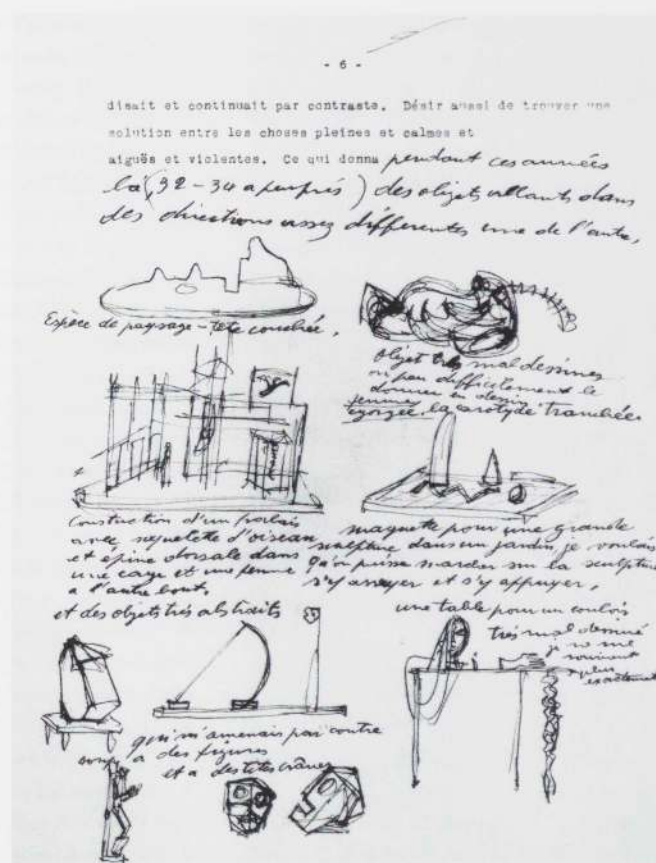 - 6 -
disait et continuait par contraste. Désir aussi de trouver une
solution entre les choses pleines et calmes et
aiguës et violentes. Ce qui donna pendant ces années
là (32 - 34 a peu prés) des objets allants dans
des directions assez différentes une de l'autre,
Espèce de paysage - tête couchée,
objet très mal dessinés
on peu difficilement le
donner en dessin
femme
egorgée la carotyde tranchée.
Construction d'un palais
avec squelette d'oiseau
et épine dorsale dans
une cage et une femme
a l'autre bout.
maquette pour une grande
sculpture dans un jardin, je voulais
qu'on puisse marcher sur la sculpture
s'y asseyer et s'y appuyer,
et des objets très abstraits
une table pour un couloir
très mal dessiné
je ne me
souvient
plus
exactement
qui m'amenais par contre
a des figures
et a des têtes crânes